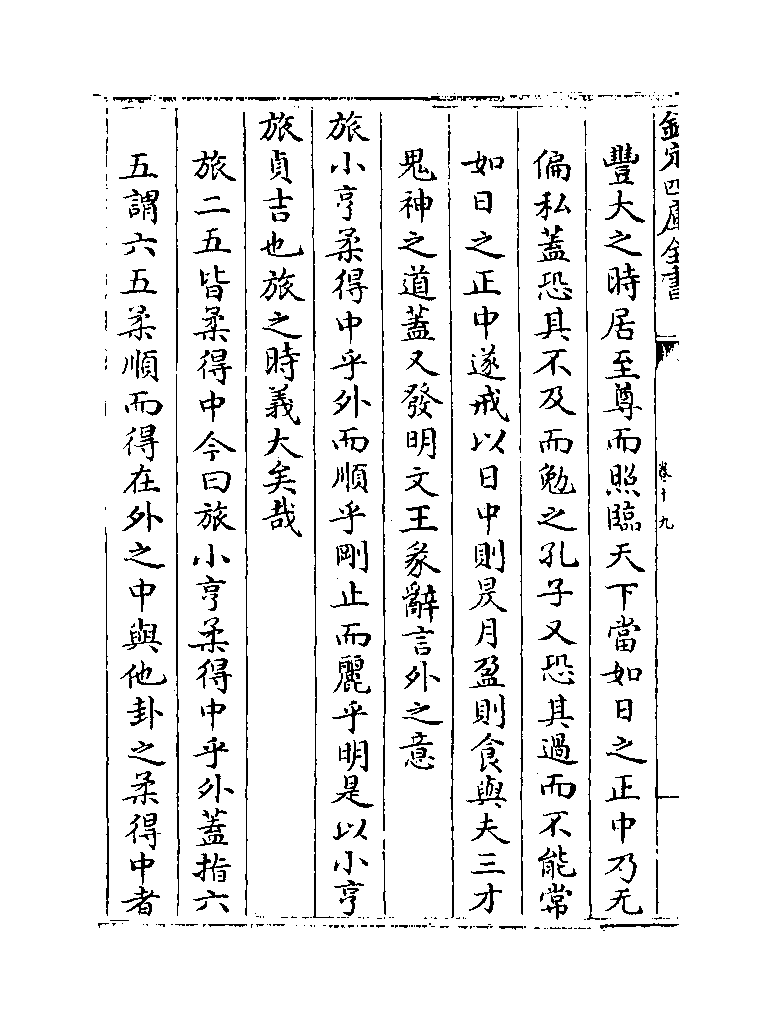 欽定四庫全書
卷十九
豐大之時居至尊而照臨天下當如日之正中乃无
偏私蓋恐其不及而勉之孔子又恐其過而不能常
如日之正中遂戒以日中則昃月盈則食與夫三才
鬼神之道蓋又發明文王彖辭言外之意
旅小亨柔得中乎外而順乎剛止而麗乎明是以小亨
旅貞吉也旅之時義大矣哉
旅二五皆柔得中今曰旅小亨柔得中乎外蓋指六
五謂六五柔順而得在外之中與他卦之柔得中者